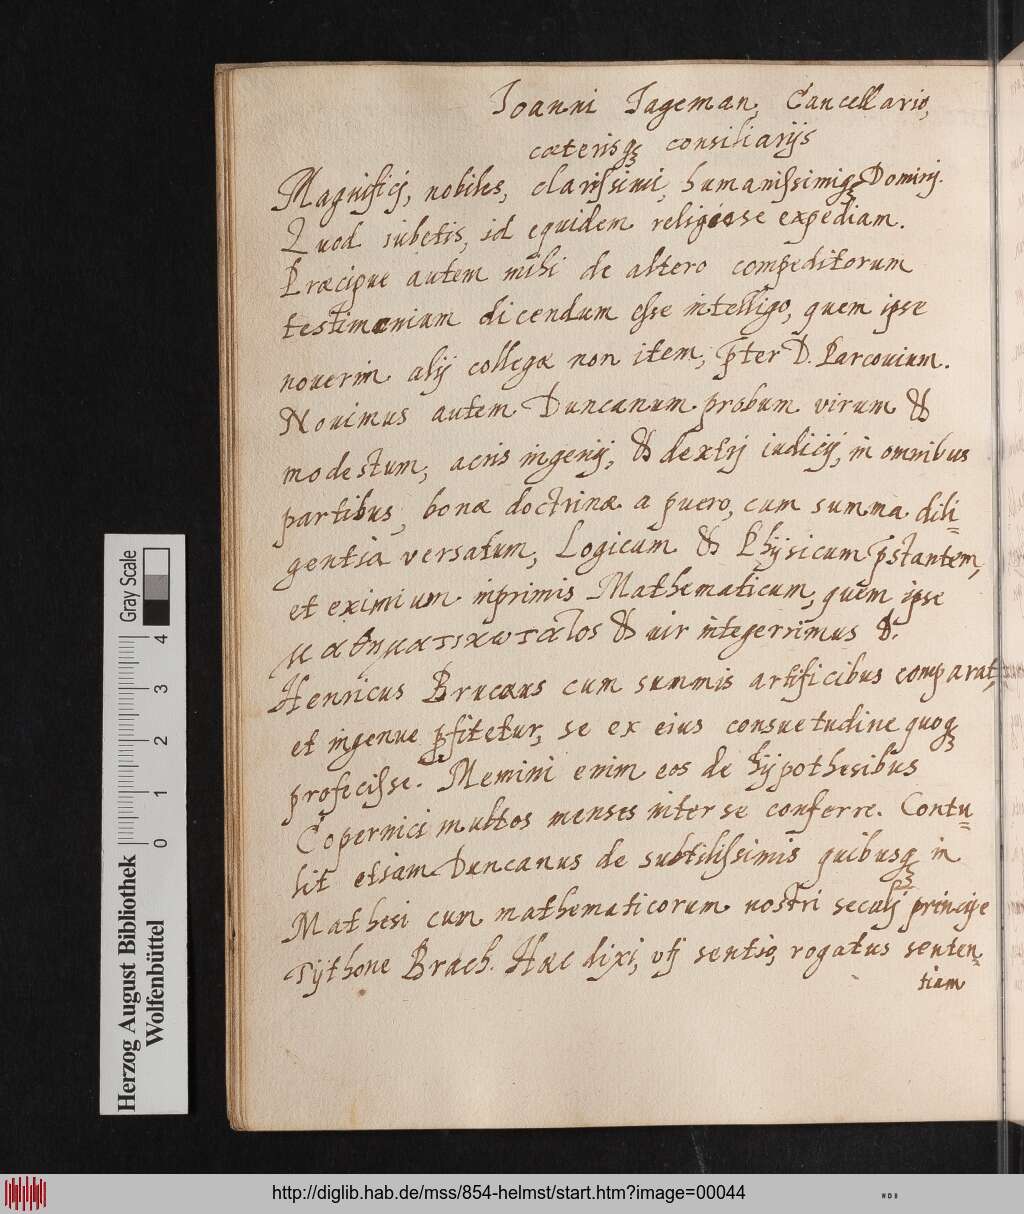 Ioanni Iageman, Cancellario,
cæterisqꝫ consiliarijs
Magnifici, nobiles, clarissimi, humanissimiqꝫ Domini.
Quod iubetis, id equidem religiose expediam.
Præcipue autem mihi de altero competitorum
testimonium dicendum esse intelligo, quem ipse
nouerim alij collegæ non item, p̄ter D. Parcouium.
Nouimus autem Duncanum probum virum &
modestum, acris ingenij, & dextri iudicij, in omnibus
partibus, bonæ doctrinæ a puero, cum summa dili=
gentia versatum, Logicum & Physicum p̄stantem,
et eximium inprimis Mathematicum, quem ipse
μαθηματικωτατος & uir integerrimus &.
Henricus Brucæus cum summis artificibus comparat,
et ingenue ꝓfitetur, se ex eius consuetudine quoqꝫ
profecisse. Memini enim eos de hypothesibus
Copernici multos menses inter se conferre. Contu=
lit etiam Duncanus de subtilissimis quibusqꝫ in
Mathesi cum mathematicorum nostri seculi principe
Tÿthone Brach. Hæc dixi, uti sentio, rogatus senten=
tiam
Gray Scale
4
3
2
1
0
Herzog August Bibliothek
Wolfenbüttel
http://diglib.hab.de/mss/854-helmst/start.htm?image=00044